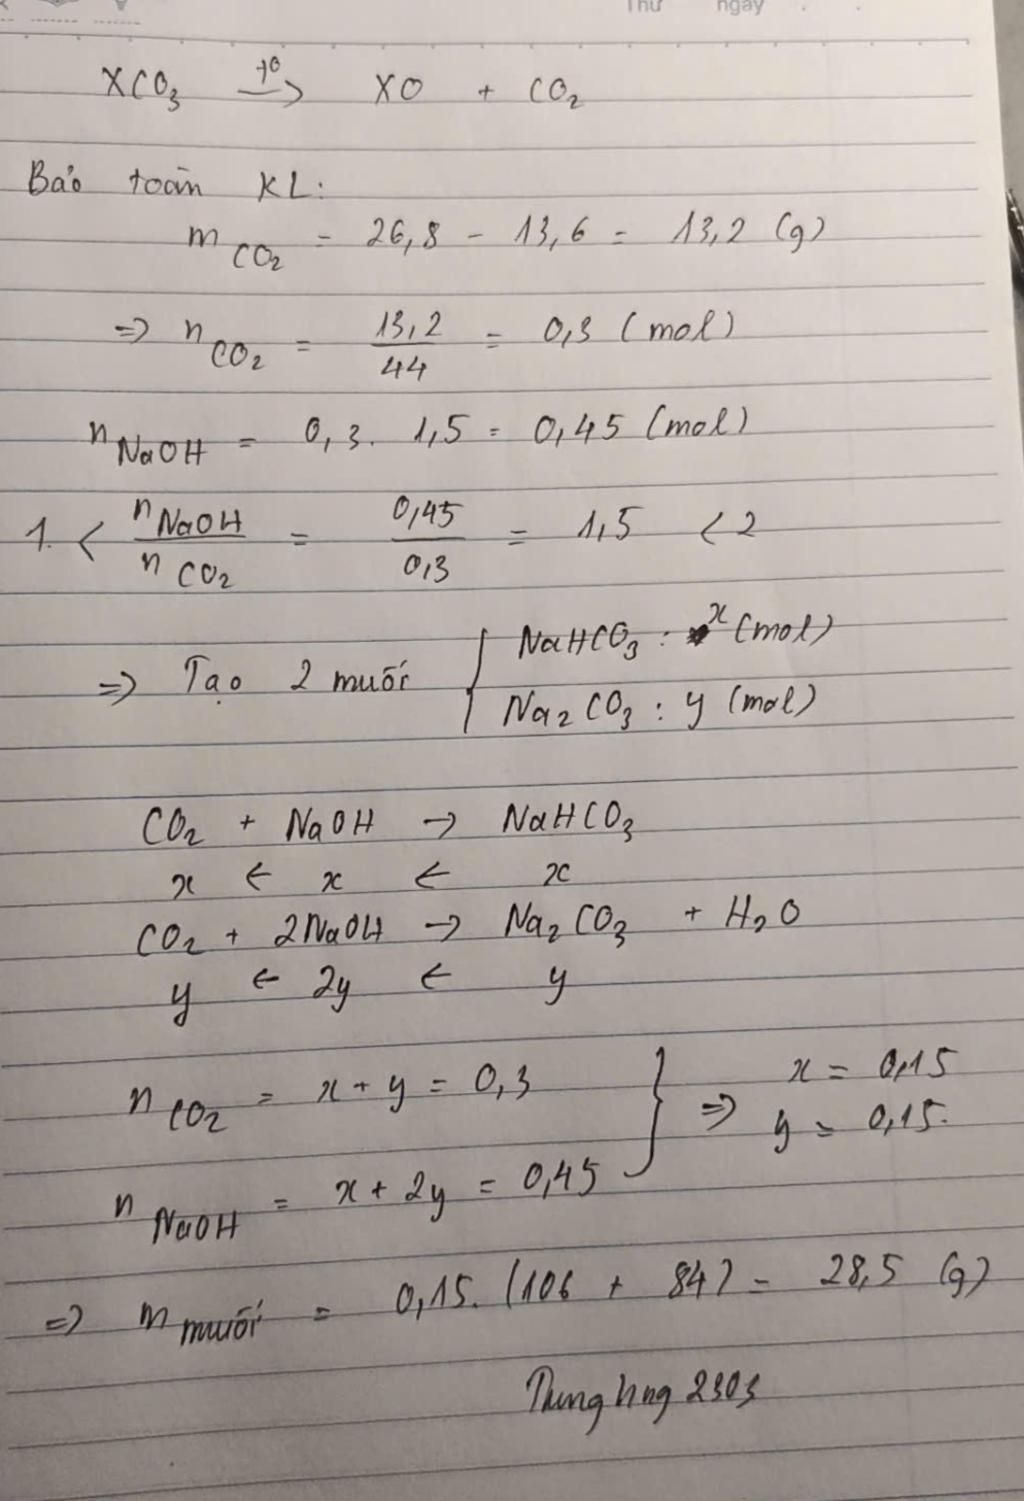 Thứ ngày
XCO₃ —t⁰→ XO + CO₂
Bảo toàn KL:
m CO₂ = 26,8 - 13,6 = 13,2 (g)
=> n CO₂ = 13,2/44 = 0,3 (mol)
n NaOH = 0,3. 1,5 = 0,45 (mol)
1. < n NaOH/n CO₂ = 0,45/0,3 = 1,5 < 2
=> Tạo 2 muối { NaHCO₃ : x (mol)
Na₂CO₃ : y (mol)
CO₂ + NaOH → NaHCO₃
x ← x ← x
CO₂ + 2NaOH → Na₂CO₃ + H₂O
y ← 2y ← y
n CO₂ = x + y = 0,3
n NaOH = x + 2y = 0,45
} => x = 0,15
y = 0,15.
=> m muối = 0,15. (106 + 84) = 28,5 (g)
2303